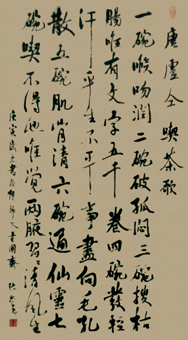 唐盧仝喫茶歌
一碗喉吻潤二碗破孤悶三碗搜枯
腸唯有文字五千卷四碗發輕
汗平生不平事盡向毛孔
散五碗肌骨清六碗通仙靈七
碗喫不得也唯覺兩腋習習清風生
庚寅